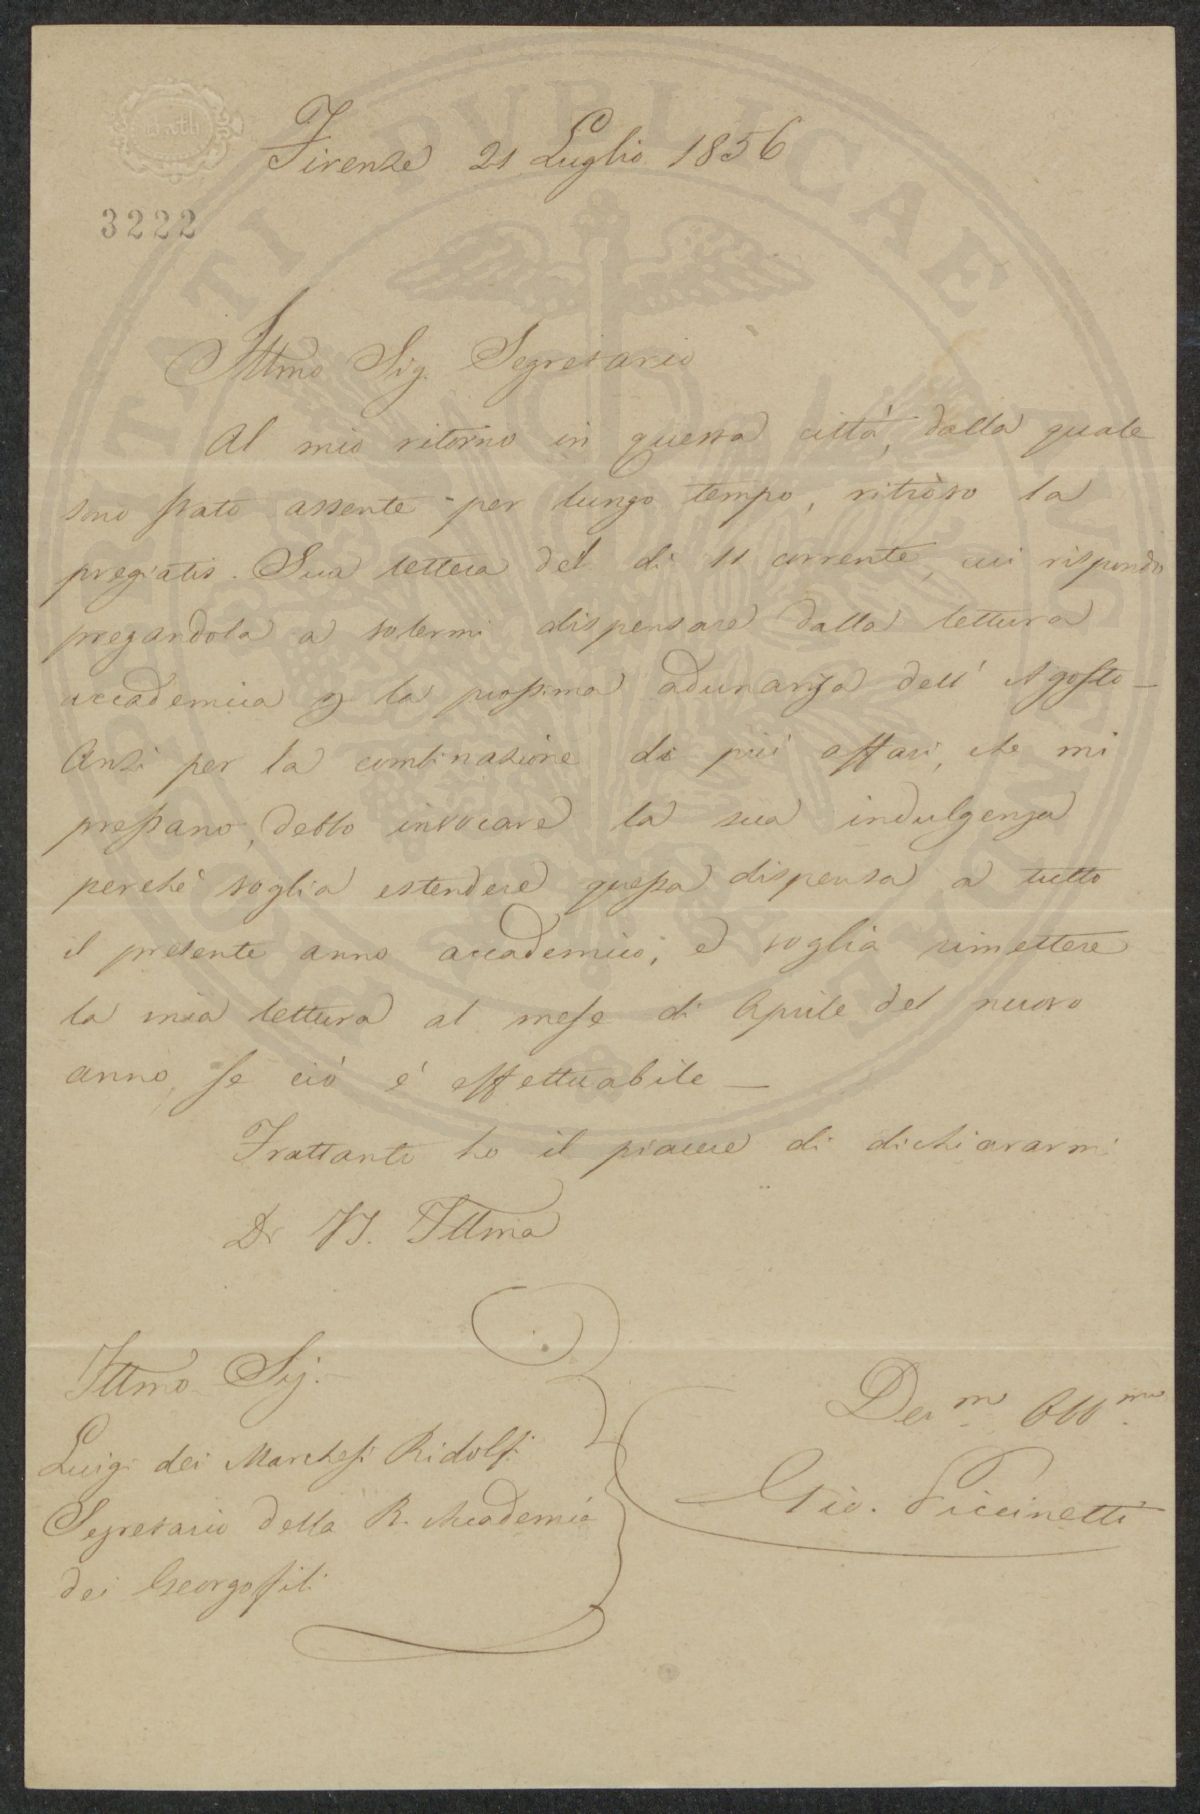 Firenze 21 Luglio 1856
3222
Illmo Sig. Segretario
Al mio ritorno in questa città, dalla quale
sono stato assente per lungo tempo, ritrovo la
pregiatis. Sua lettera del dì 11 corrente, cui rispondo
pregandola a volermi dispensare dalla lettura
accademica p la prossima adunanza dell' Agosto —
Anzi per la combinazione di più affari, che mi
pressano, debbo invocare la sua indulgenza
perchè voglia estendere questa dispensa a tutto
il presente anno accademico, e voglia rimettere
la mia lettura al mese di Aprile del nuovo
anno, se ciò è effettuabile —
Frattanto ho il piacere di dichiararmi
Di VS. Illma
Illmo Sig.
Luigi dei Marchesi Ridolfi
Segretario della R. Accademia
dei Georgofili
Dev.mo Obb.mo
Gio. Piccinetti
PROSPERITATI PVBLICAE AVGENDAE